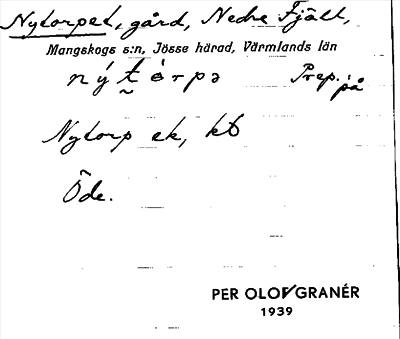 Nytorpet, gård, Nedre Fjäll,
Mangskogs s:n, Jösse härad, Värmlands län
nýt̰òrpə Prep. på
Nytorp ek, kb
Öde.
PER OLOV GRANÉR
1939